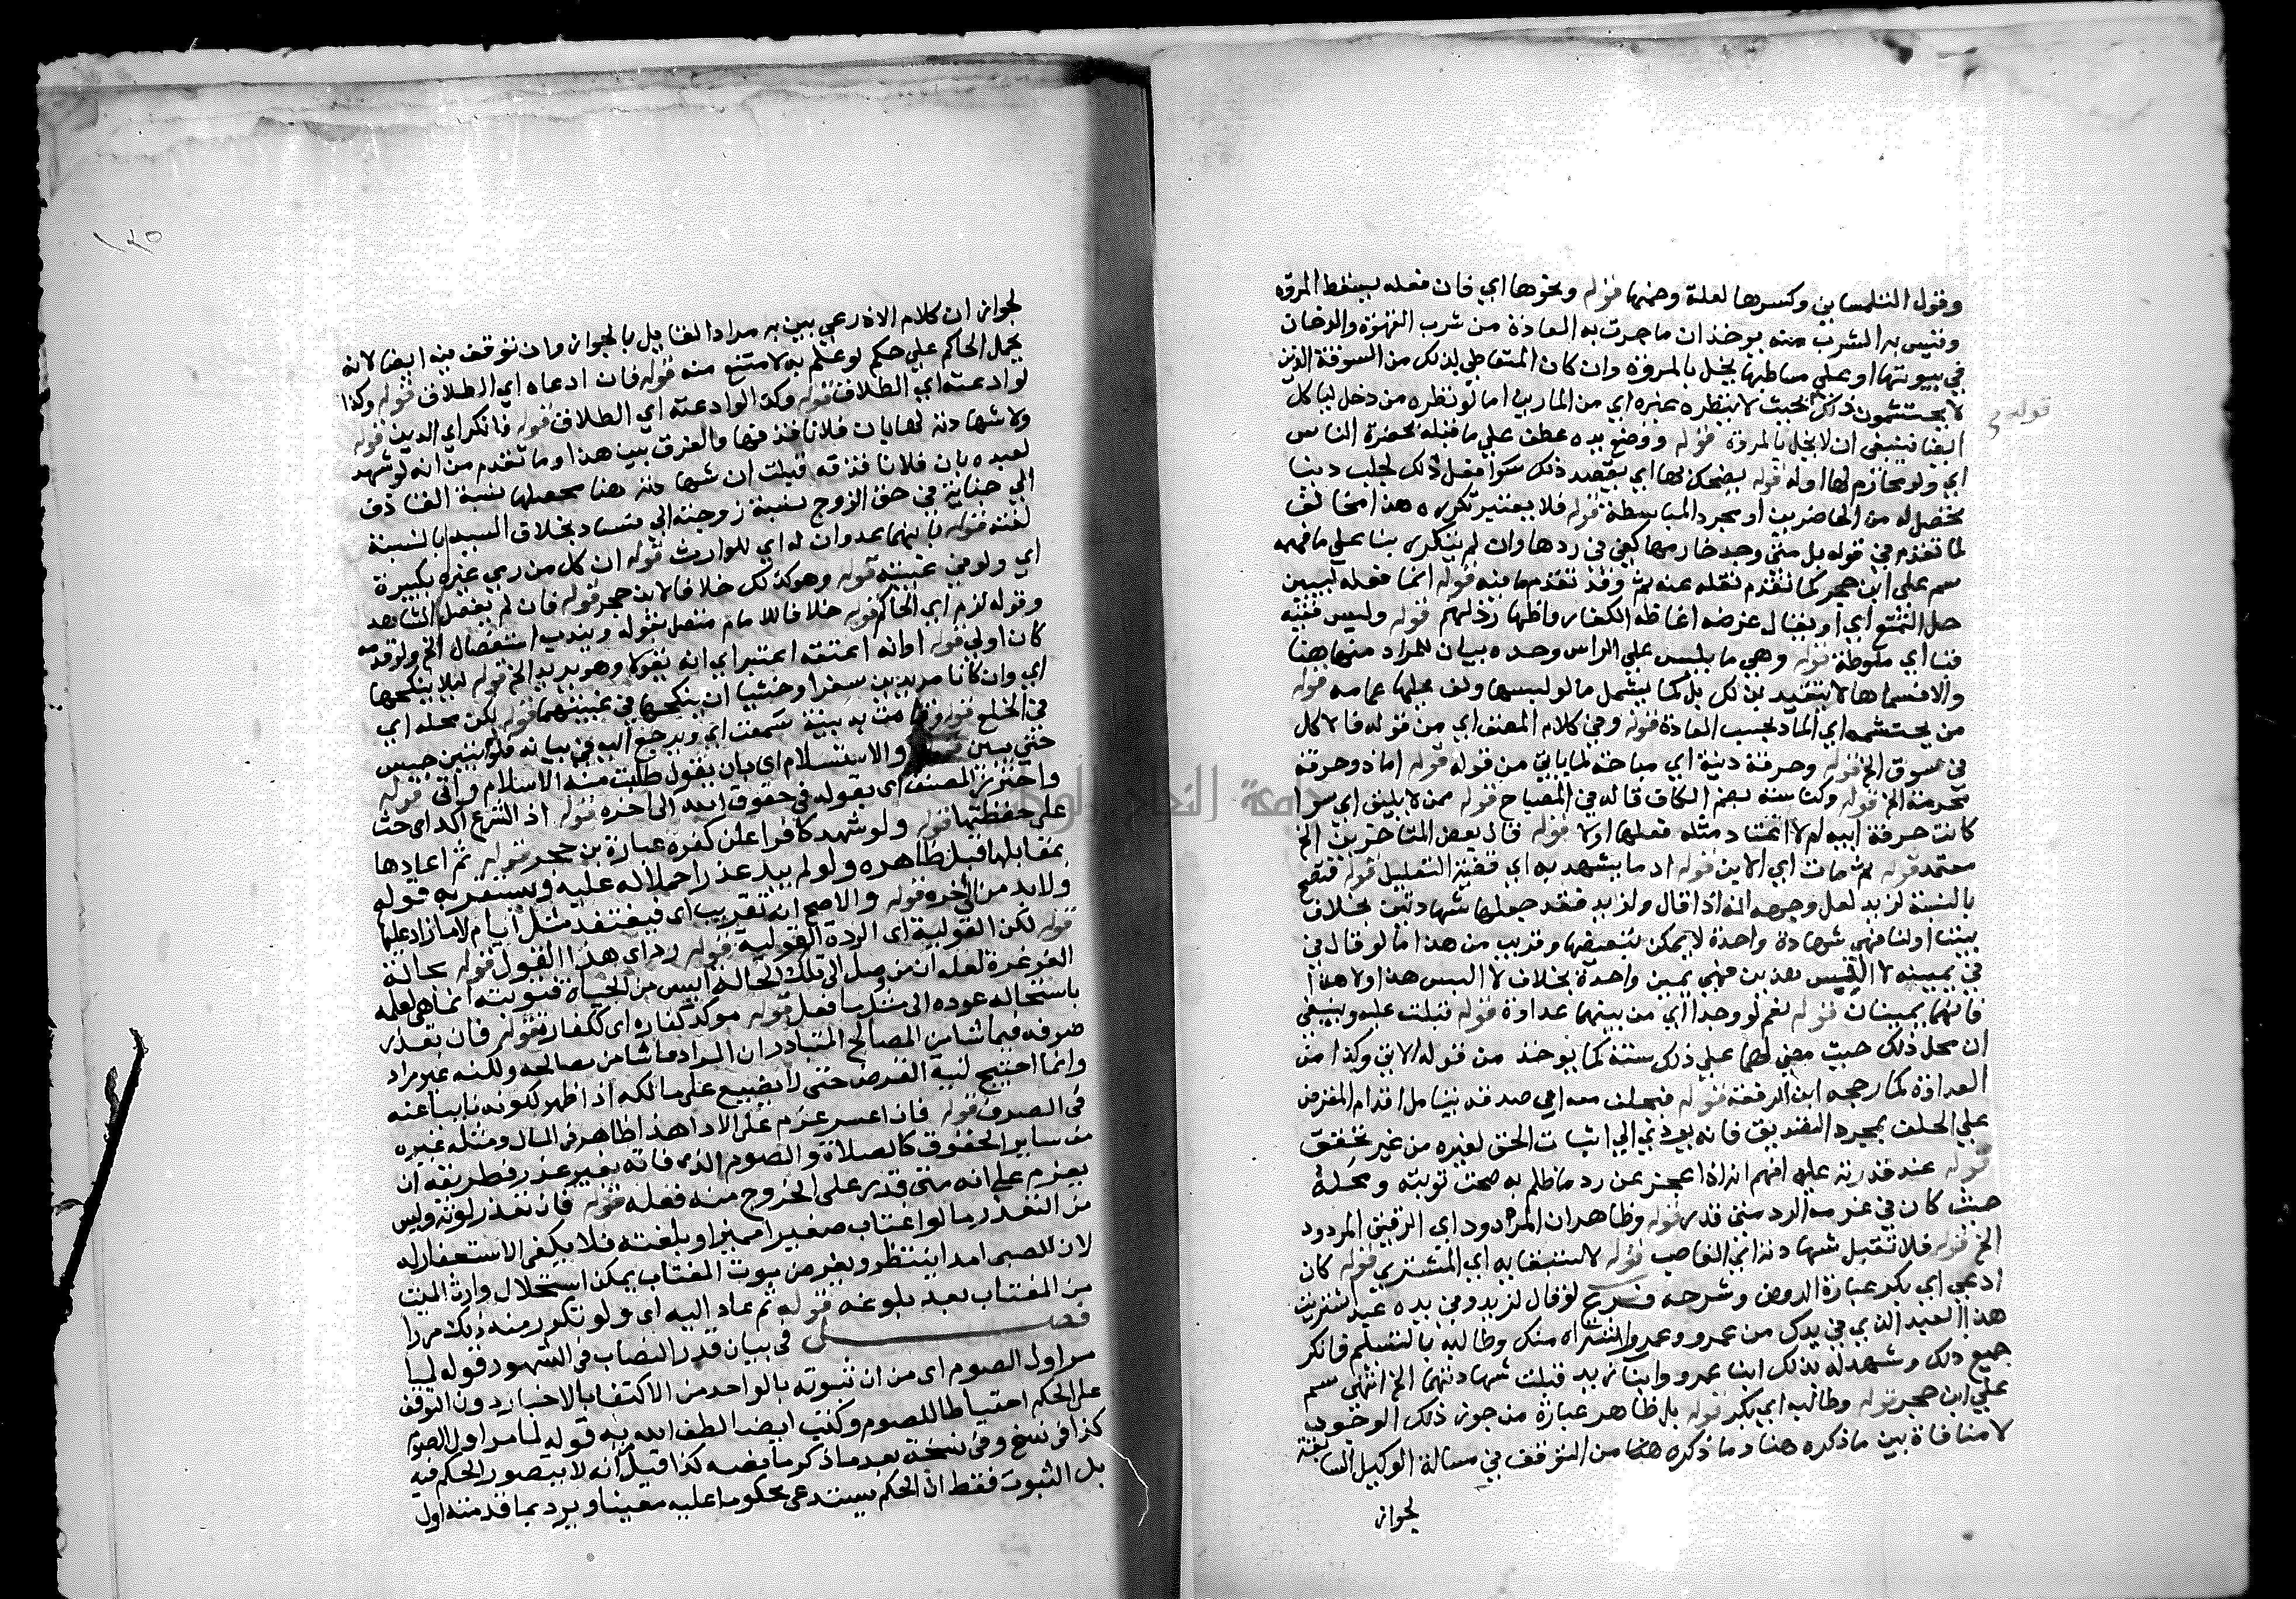 وقول التلمساني وكسرها لعله وحمنها قوله ونحوها اي فان فعله يسقط المروة
وقيس به الشرب منه يوخذ ان ما جرت به العادة من شرب القهوة والدخان
في بيوتها او على مساطبها يخل بالمروة وان كان المتعاطي لذلك من السوقة الذين
لا يحتشمون ذلك بحيث لا ينظره غيره اي من المارين اما لو نظره من دخل لياكل
قوله
ايضا فينبغي ان لا يخل بالمروة قوله ووضع يده عطف على ما قبله بحضرة الناس
اي ولو محارم لها اوله قوله يضحك بها اي يقصد ذلك سوا فعل ذلك لجلب دنيا
تحصل له من الحاضرين او مجرد المباسطة قوله فلا يعتبر تكرره هذا مخالف
لما تقدم في قوله بل متى وجد خارمها كفى في ردها وان لم يتكرر بنا على ما فهمه
سم على ابن حجر كما تقدم نقله عنه ثم وقد تقدم ما فيه قوله انما فعله ليبين
حل التمتع اي او يقال غرضه اغاظة الكفار واظهار ذلهم قوله وليس فقيه
قبا اي ملوطة قوله وهي ما يلبس على الراس وحده بيان للمراد منها هنا
والا فمسماها لا يتقيد بذلك بل كما يشمل ما لو لبسها ولف عليها عمامه قوله
من يحتشمه اي الماد بحسب العادة قوله وفي كلام المصنف اي من قوله فالاكل
في سوق الخ قوله وحرفة دنية اي مباحة لما ياتي من قوله قوله اما ذو حرفة
محرمة الخ قوله وكناسه بضم الكاف قاله في المصباح قوله ممن لا يليق اي سوا
كانت حرفة ابيه ام لا اعتاد مثله فعلها اولا قوله قال بعض المتاخرين الخ
معتمد قوله ثم مات اي الابن قوله اذ ما يشهد به اي قضية التعليل قوله فتصح
بالنسبة لزيد لعل وجهه انه اذا قال ولزيد فقد جعلها شهادتين بخلاف
بيننا اولنا فهي شهادة واحدة لا يمكن تبعيضها وقريب من هذا ما لو قال في
في يمينه لا البس هذين فهي يمين واحدة بخلاف لا البس هذا ولا هذا
فانهما يمينان قوله نعم لو وجدا اي من بينهما عداوة قوله قبلت عليه وينبغي
ان محل ذلك حيث مضى لهما على ذلك سنة كما يوخذ من قوله الاتي وكذا من
العداوة كما رجحه ابن الرفعة قوله فيحلف معه اي صدقه يتامل اقدام المقرض
على الحلف بمجرد التصديق فانه يودي الي اثبات الحق لغيره من غير تحقق
قوله عند قدرته عليه افهم انه اذا عجز عن رد ما ظلم به صحت توبته ومحله
حيث كان في عزمه الرد متى قدر قوله وظاهر ان المردود اي الرقيق المردود
الخ قوله فلا تقبل شهادة ابني الغاصب قوله لاستيفايه اي المشتري قوله كان
ادعي اي بكر عبارة الروض وشرحه فرع لو قال لزيد وفي يده عبد اشتريت
هذا العبد الذي في يدك من عمرو وعمرو اشتراه منك وطالبه بالتسليم فانكر
جميع ذلك وشهد له بذلك ابنا عمرو وابنا زيد قبلت شهادتهما الخ انتهى سم
علي ابن حجر قوله وطالبه اي بكر قوله بل ظاهر عبارة من جوز ذلك الوجوب
لا منافاة بين ما ذكره هنا وما ذكره هنا من التوقف في مسالة الوكيل السابقة
لجواز
١٣٥
لجواز ان كلام الاذرعي بين به مراد القايل بالجواز وان توقف فيه ايضا لانه
يحمل الحاكم علي حكم لو علم به لامتنع منه قوله فان ادعاه اي الطلاق قوله وكذا
لو ادعته اي الطلاق قوله وكذا لو ادعته اي الطلاق قوله فانكر اي الدين قوله
ولا شهادته لها بان فلانا قذفها والفرق بين هذا وما تقدم من انه لو شهد
لعبده بان فلانا قذفه قبلت ان شهادته هنا محصلها نسبة القاذف
الي جناية في حق الزوج بنسبة زوجته الي فساد بخلاف السيد بالنسبة
لقنه قوله فانهما عدوان له اي للوارث قوله ان كل من رمي غيره بكبيرة
اي ولو في غيبته قوله وهو كذلك خلافا لابن حجر قوله فان لم يفصل الشاهد
وقوله لزم اي الحاكم قوله خلافا للامام متصل بقوله ويندب استفصال الخ ولو قدمه
كان اولي قوله او انه اعتقه اعتبر اي انه يقولا وهو يريد الخ قوله ليلا ينكحها
اي وان كانا مريدين سفرا وخشيا ان ينكحها في غيبتهما قوله لكن محله اي
في الخلع قوله وما مت به بينة سمعت اي ويرجع اليه في بيانه فلو لم يبين حبس
حتى يبين والاستسلام اي بان يقول طلبت منه الاسلام وأتى قوله
واحترز المصنف اي بقوله في حقوق الله الى اخره قوله اذ الشرع اكد اي حث
على حفظتها قوله ولو شهد كافر اعلن كفره عبارة بن حجر قوله ثم اعادها
بمقابلها قبل ظاهره ولو لم يبد عذرا حملا له عليه ويستقر به قوله
ولا بد من الى اخره قوله والاصح انه تقريب اي فيغتفد مثل ايام لا ما زاد عليها
قوله لكن القولية اي الردة القولية قوله رد اي هذا القول قوله بحالة
الغرغرة لعله ان من وصل الى تلك الحالة ايس من الحياة فتوبته انما هي لعلمه
باستحالة عوده الى مثل ما فعل قوله موكد كفاره اي ككفار قوله فان تعذر
صرفه فيما شا من المصالح المتبادر ان المراد ما شا من مصالحه ولكنه غير مراد
وانما احتيج لنية القرض حتى لا يضيع على مالكه اذا ظهر لكونه نايبا عنه
في الصرف قوله فان اعسر عزم على الادا هذا ظاهر في المال ومثله غيره
من ساير الحقوق كالصلاة والصوم الذي فاته بغير عذر فطريقه ان
يعزم على انه متى قدر على الخروج منه فعله قوله فان تعذر لوته وليس
من التعذر ما لو اغتاب صغيرا مميزا وبلغته فلا يكفي الاستغفار له
لان للصبي امدا ينتظر وبفرض موت المغتاب يمكن استحلال وارث الميت
من المغتاب بعد بلوغه قوله ثم عاد اليه اي ولو تكرر منه ذلك مرارا
فصل في بيان قدر النصاب في الشهود قوله لما
مر اول الصوم اي من ان ثبوته بالواحد من الاكتفا بالاخبار دون التوقف
على الحكم احتياطا للصوم وكتب ايضا لطف الله به قوله لما مر اول الصوم
كذا في نسخ وفي نسخة بعد ما ذكر ما نصه كذا قيل انه لا يتصور الحكم فيه
بل الثبوت فقط ان الحكم يستدعي محكوما عليه معينا ويرد بما قدمته اول